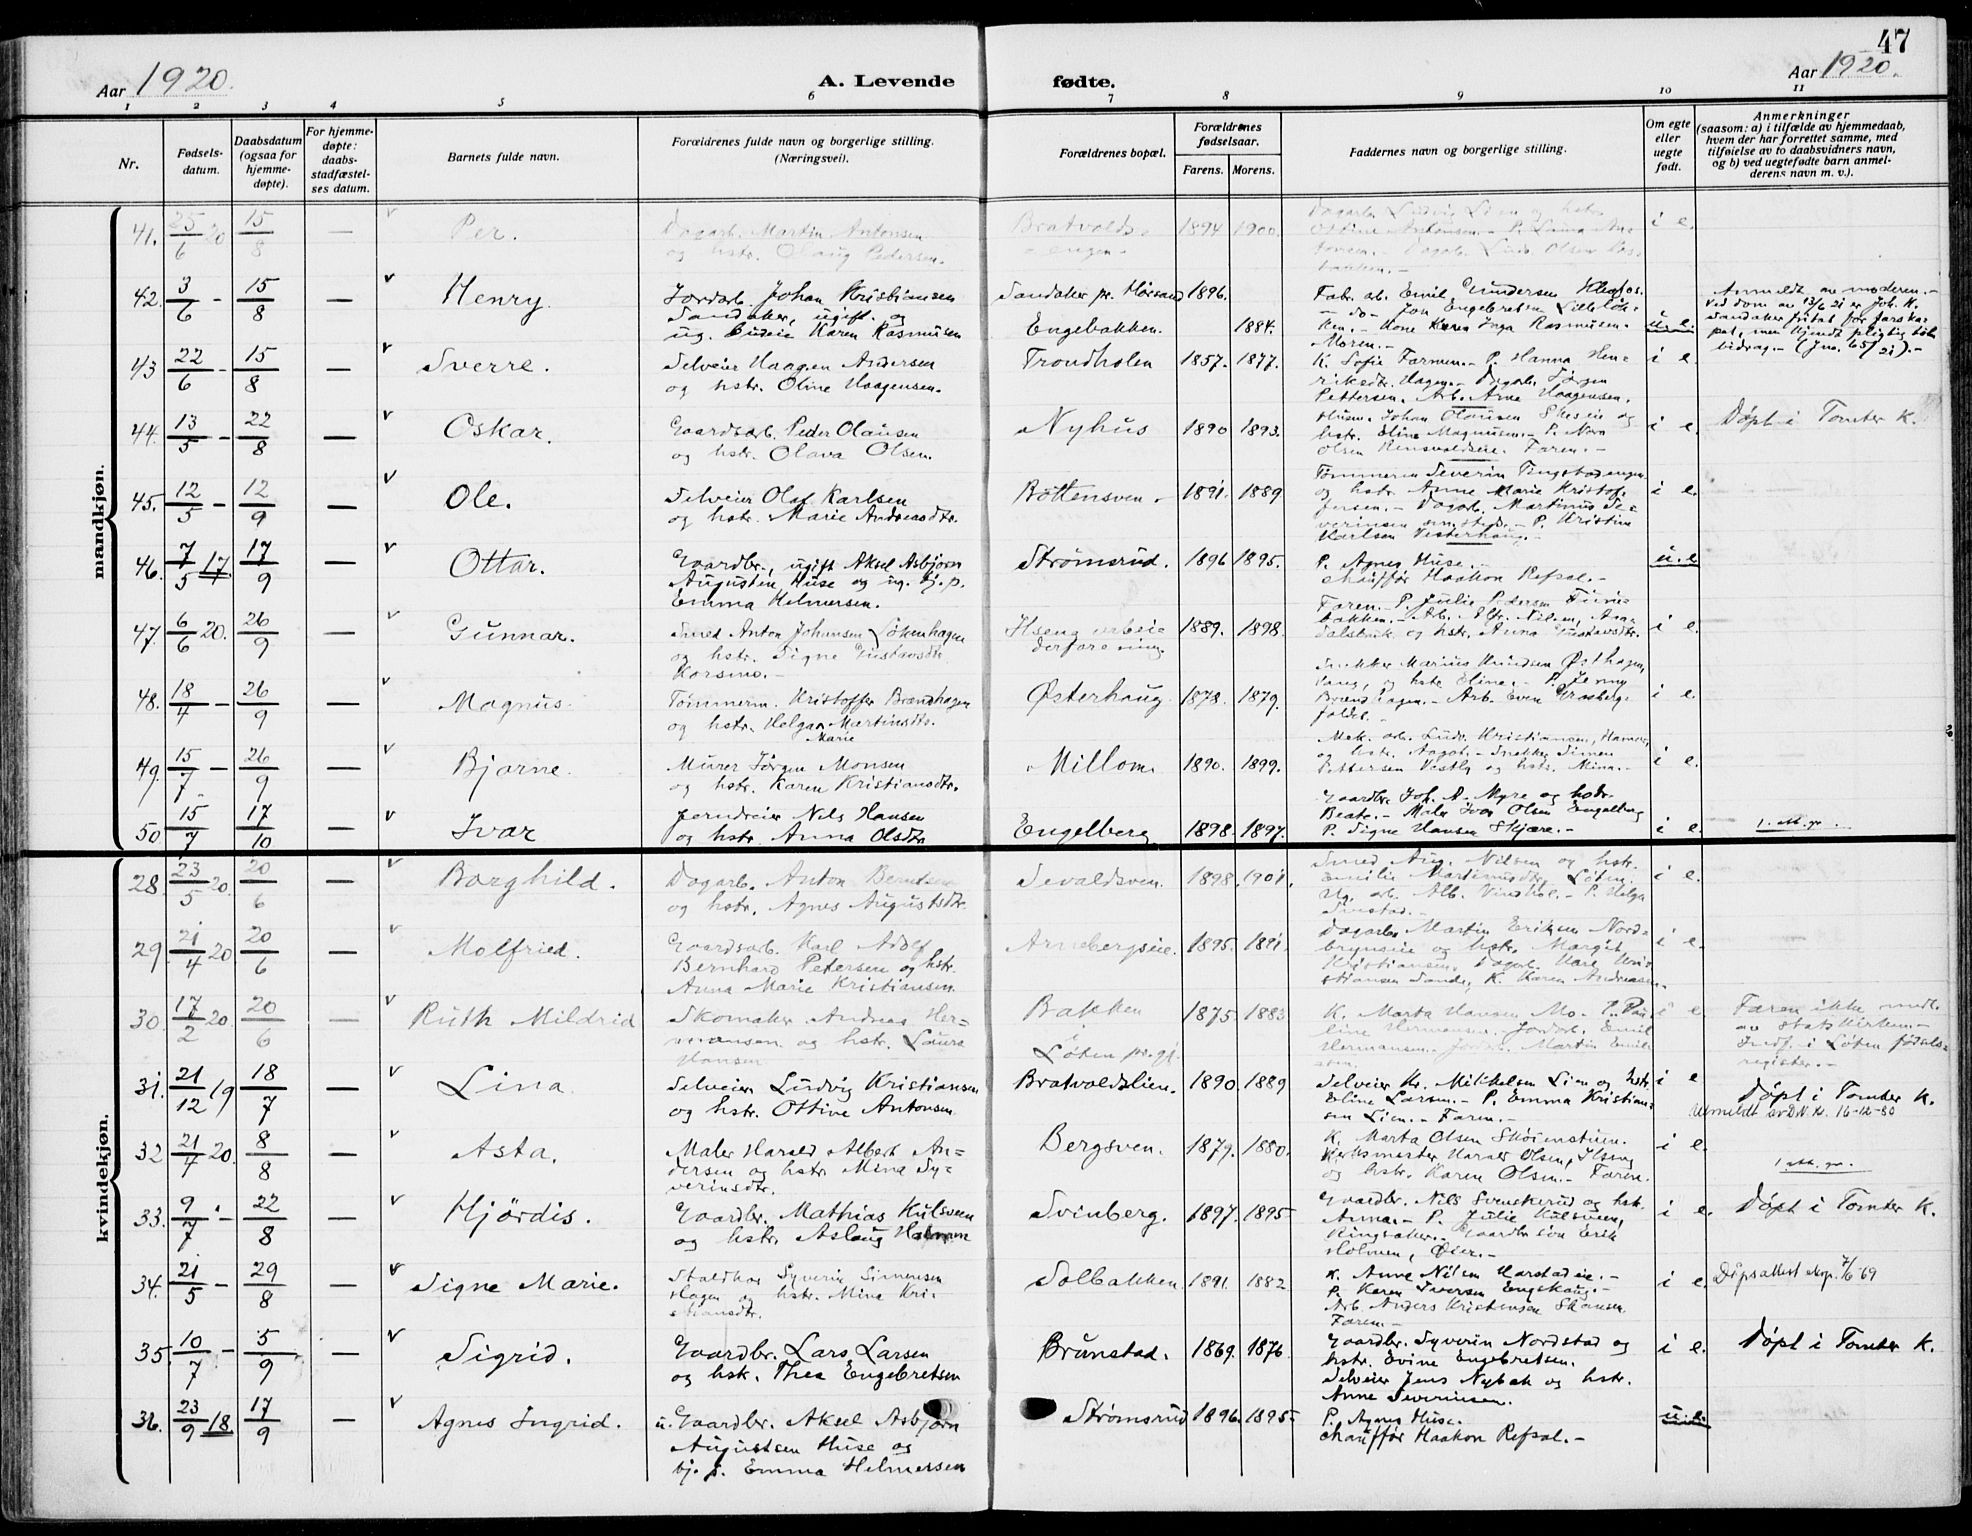 47
Aar 1920.
A. Levende fødte.
Aar 1920.
1 2 3 4 5 6 7 8 9 10 11
Nr.
Fødsels-
datum.
Daabsdatum
(ogsaa for
hjemme-
døpte).
For hjemme-
døpte:
daabs-
stadfæstel-
ses datum.
Barnets fulde navn.
Forældrenes fulde navn og borgerlige stilling.
(Næringsvei).
Forældrenes bopæl.
Forældrenes
fødselsaar.
Farens. Morens.
Faddernes navn og borgerlige stilling.
Om egte
eller
uegte
født.
Anmerkninger
(saasom: a) i tilfælde av hjemmedaab,
hvem der har forrettet samme, med
tilføielse av to daabsvidners navn,
og b) ved uegtefødte barn anmel-
derens navn m. v.).
mandkjøn.
41. 25/6 20 15/8 — Per. Dagarb. Martin Antonsen
og hstr. Olaug Pedersen.
Bratvolds-
engen. 1894 1900.
Dagarb. Ludvig Lien og hstr.
i e.
42. 3/6 - 15/8 — Henry. Jordarb. Johan Kristiansen
Sandaker, ugift og
ug. Budeie Karen Rasmussen
Sandaker pr. Hørsand 1896.
Engebakken. 1884.
Fabr. arb. Emil Gundersen
- do - Jon Engebretsen
Kone Karen Inga Rasmusen.
Moren.-
u. e.
Anmeldt av moderen.-
Ved dom av 13/6 21 er Joh. K.
Sandaker fritat for farska-
pet, men kjendt pligtig til
bidrag.- (Jnr. 65/21).-
43 22/6 - 15/8 — Sverre. Selveier Haagen Andersen
og hstr. Oline Haagensen.
Trondholen 1857. 1877.
K. Sofie Farmen.- P. Hanna Hen-
riksdtr. Hagen.- Dagarb. Jørgen
Pettersen. Arb. Arne Haagensen.
i e.
44. 13/5 - 22/8 — Oskar. Gaardsarb. Peder Olausen
og hstr. Olava Olsen.
Nyhus 1890 1893.
Husm. Johan Olausen Skeseie og
hstr. Eline Magnusen.- P. Nora
Olsen Rensvoldseie. Faren.-
i e.
Døpt i Tomter K.
45. 12/5 - 12/9 — Ole. Selveier Olaf Karlsen
og hstr. Marie Andreasdtr.
Bøttensven. 1891. 1889
Tømmerm Severin Tingstadengen
og hstr. Anne Marie Kristof-
fersen.- Dagarb. Martinus Se-
verinsen sm. sted.- P. Kristine
Karlsen Vesterhaug.-
i e.
46. 7/5 17 17/9 — Ottar. Gaardbr., ugift Aksel Asbjørn
Augustin Huse og ug. tj. p.
Emma Helmersen.
Strømsrud. 1896 1895.
P. Agnes Huse.-
Chauffør Haakon Refsal.-
u. e.
47. 6/6 20. 26/9 — Gunnar. Smed Anton Johansen Løkenhagen
og hstr. Signe Gustavsdtr
Korsmo.-
Ilseng arbei-
derforening 1889. 1898.
Faren.- P. Julie Pedersen
hstr. Anna Gustavsdtr.
i e.
48. 18/4 - 26/9 — Magnus. Tømmerm. Kristoffer Brændhagen
og hstr. Helga Marie Martinsdtr.
Østerhaug 1878. 1879.
Snekker Marius Knudsen Østhagen,
Vang, og hstr. Eline.- P. Jenny
Brændhagen.- Arb. Even
i e.
49. 15/7 - 26/9 — Bjarne. Murer Jørgen Monsen
og hstr. Karen Kristiansdtr.
Millom. 1890. 1899.
Mek. arb. Ludv. Kristiansen, Hamar,
og hstr. Aagot.- Snekker Simen
Pettersen Vestly og hstr. Mina.-
i e.
50 15/7 17/10 — Ivar Jerndreier Nils Hansen
og hstr. Anna Olsdtr.
Engelberg 1898. 1897.
Gaardbr. Joh. A. Myre og hstr.
Beate.- Maler Ivar Olsen Engelberg
P. Signe Hansen Skjære.-
i e.
kvindekjøn.
28. 23/5 20. 20/6 — Borghild. Dagarb. Anton Berntsen
og hstr. Agnes Augustsdtr.
Sevaldsven. 1898. 1901.
Smed Aug. Nilsen og hstr.
Emilie Martinusdtr. Løten.
Ug. arb. Alb. Vindhol.- P. Helga
i e.
29. 21/4 20 20/6 — Molfried. Gaardsarb. Karl Adolf
Bernhard Petersen og hstr.
Anna Marie Kristiansen.
Arnebergseie. 1895. 1891.
Dagarb. Martin Eriksen Nord-
brynseie og hstr. Margit
Kristiansen. Dagarb. Karl Kris-
tiansen Sande, K. Karen Andreasen.
i e.
30. 17/2 20. 20/6 — Ruth Mildrid Skomaker Andreas Her-
mansen og hstr. Laura
Hansen
Bakken
i
Løten pr.gj. 1875. 1883
K. Marta Hansen Mo.- P. Pau-
line Hermansen. Jordarb. Emil
Hermansen. Jordarb. Martin Emil-
sen.
i e.
Faren ikke medl.
av statskirken.-
Indf. i Løten fødsels-
register.-
31. 21/12 19 18/7 — Lina. Selveier Ludvig Kristiansen
og hstr. Ottine Antonsen
Bratvoldslien. 1890. 1889
Selveier Kr. Mikkelsen Lien og hstr.
Eline Larsen.- P. Emma Kristian-
sen Lien.- Faren.-
i e
Døpt i Tomter K.
Utmeldt av D.N.K. 16-12-80
32 21/4 20. 8/8 — Asta. Maler Harald Albert An-
dersen og hstr Mina Sy-
verinsdtr.
Bergsven. 1879. 1880.
K. Marta Olsen Skøienstuen.
Verksmester Harald Olsen, Ilseng
og hstr. Karen Olsen.- Faren.
i e.
33. 9/7 - 22/8 — Hjördis. Gaardbr. Mathias Kulsveen
og hstr. Aslaug Holmen
Svinberg. 1897. 1895
Gaardbr. Nils Svenskerud og hstr.
Anna.- P. Julie Kulsveen,
Ringsaker.- Gaardbr søn Erik
Holmen, Øier.-
i e.
Døpt i Tomter K.
34. 21/5 - 29/8 — Signe Marie. Staldkar Syverin Simensen
Hagen og hstr. Mina Kri-
stiansdtr.
Solbakken 1891. 1882
K. Anne Nilsen Harstadeie.-
P. Karen Iversen Engehaug.-
Arb. Anders Kristensen Skansen
Faren.-
i e.
Dåpsattest 7/6-69
35. 10/7 - 5/9 — Sigrid. Gaardbr. Lars Larsen
og hsk. Thea Engebretsen
Brunstad. 1869. 1876.
Gaardbr. Syverin Nordstad og
hstr. Evine Engebretsen.
Selveier Jens Nybak og hstr.
Anne Severinsen.
i e.
Døpt i Tomter K.
36. 23/9 18. 17/9 — Agnes Ingrid. u. Gaardbr. Aksel Asbjørn
Augustsen Huse og
tj. p. Emma Helmersen
Strømsrud 1896. 1895
P. Agnes Huse.
Chauffør Haakon Refsal.-
u. e.